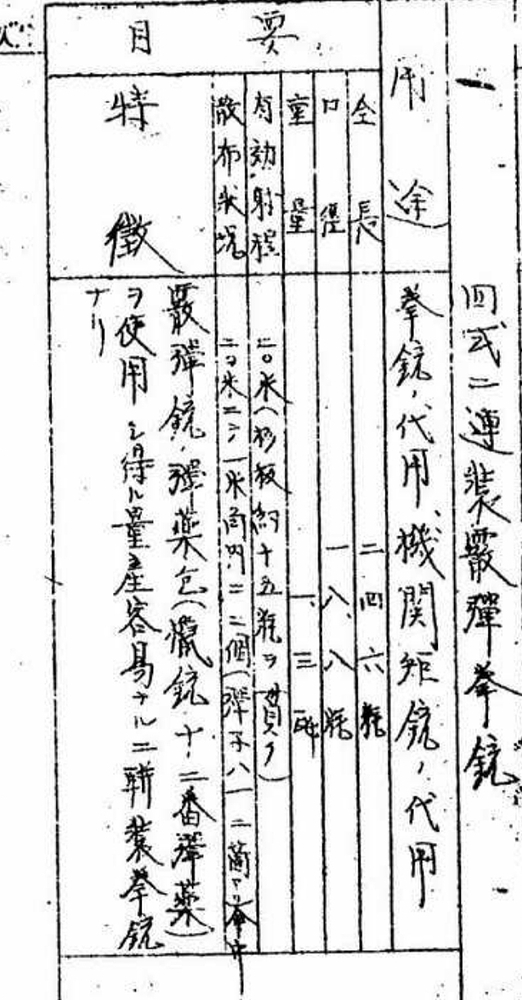 一
四式二連装霰弾拳銃
用途
拳銃ノ代用、機関短銃ノ代用
要目
全長
二四六粍
口径
一八.八粍
重量
一.三瓩
有効射程
二〇米(杉板約十五粍ヲ貫ク)
散布状况
二〇米ニテ一米
二個(弾子八一二箇
命中
特徴
霰弾銃ノ弾薬包(猟銃十二番弾薬)
ヲ使用シ得ル量産容易ナル二聯装拳銃
ナリ